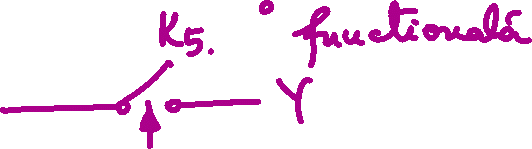 K5. ° functională
Y